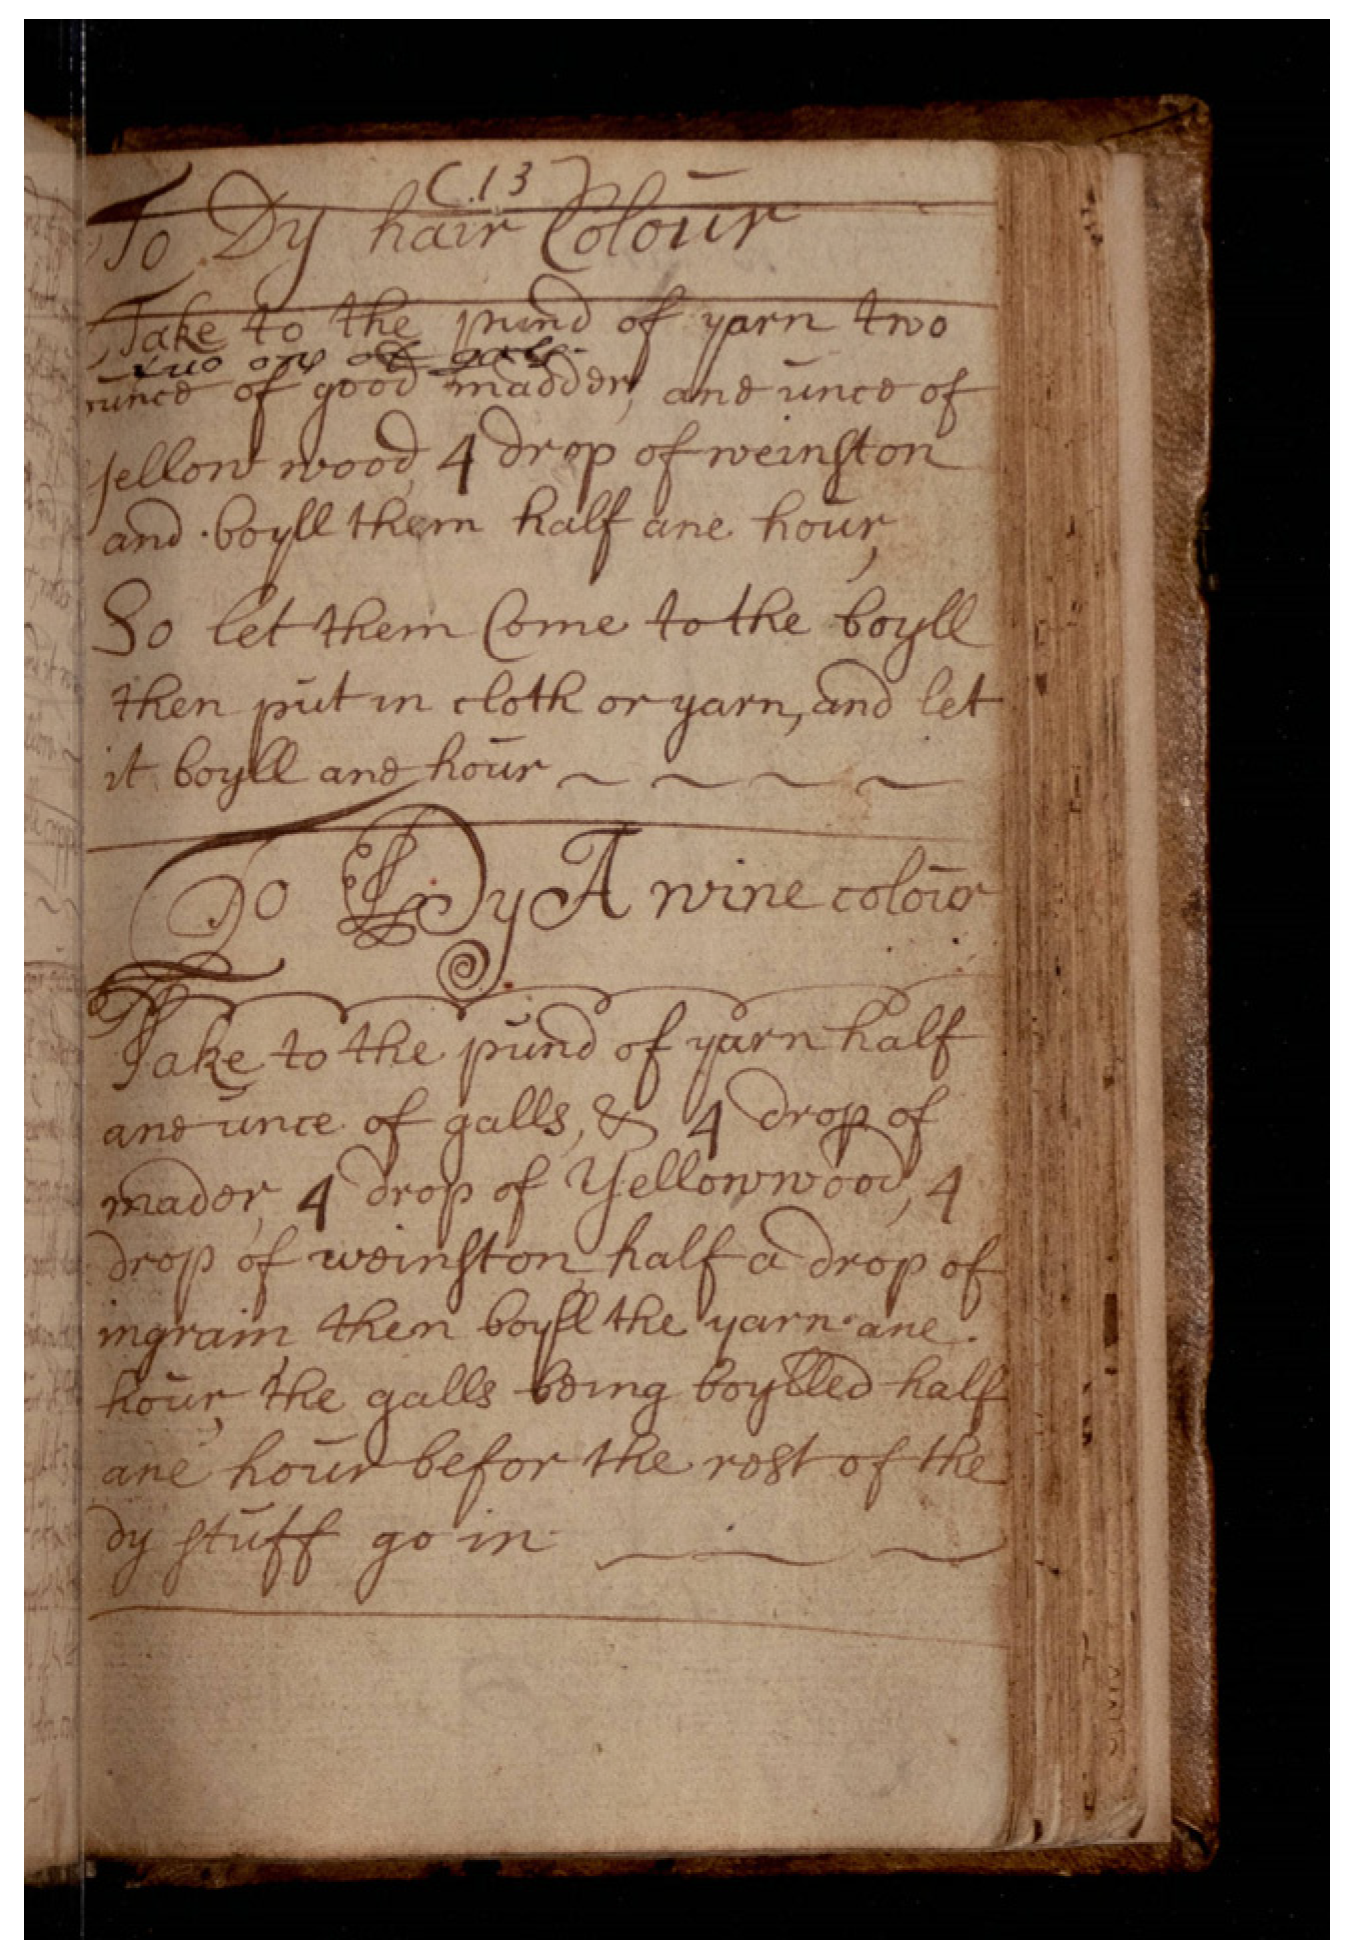 C 13
To Dy hair Colour
Take to the pund of yarn two
two of galls
unce of good madder, ane unce of
yellow wood, 4 drop of weinston
and boyll them half ane hour,
So let them Come to the boyll
then put in cloth or yarn, and let
it boyll ane hour
To Dy A wine colour
Take to the pund of yarn half
ane unce of galls, & 4 drop of
mader, 4 drop of Yellowwood, 4
drop of weinston, half a drop of
ingrain then boyll the yarn ane
hour, the galls being boylled half
ane hour befor the rest of the
dy stuff go in